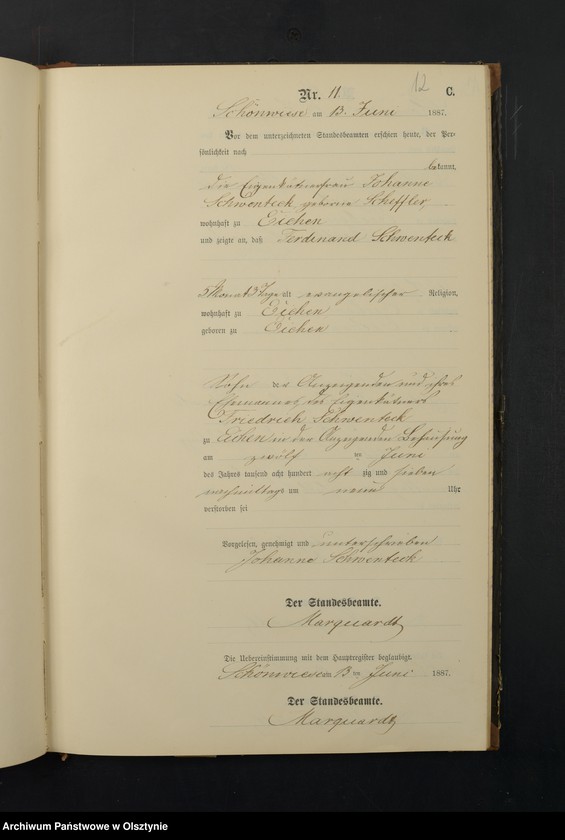 12
Nr. 11. C.
Schönwiese am 13. Juni 1887.
Vor dem unterzeichneten Standesbeamten erschien heute, der Per-
sönlichkeit nach
bekannt,
die Eigenkäthnerfrau Johanne
Schwenteck geborne Scheffler,
wohnhaft zu Eichen
und zeigte an, daß Ferdinand Schwenteck
5 Monat 3 Tage alt evangelischer Religion,
wohnhaft zu Eichen
geboren zu Eichen
Sohn der Anzeigenden und ihres
Ehemannes des Eigenkäthners
Friedrich Schwenteck
zu Eichen in der Anzeigenden Behausung
am zwölf ten Juni
des Jahres tausend acht hundert acht zig und sieben
nachmittags um neun Uhr
verstorben sei
Vorgelesen, genehmigt und unterschrieben
Johanna Schwenteck
Der Standesbeamte.
Marquardt
Die Uebereinstimmung mit dem Hauptregister beglaubigt.
Schönwiese am 13 ten Juni 1887.
Der Standesbeamte.
Marquardt
Archiwum Państwowe w Olsztynie